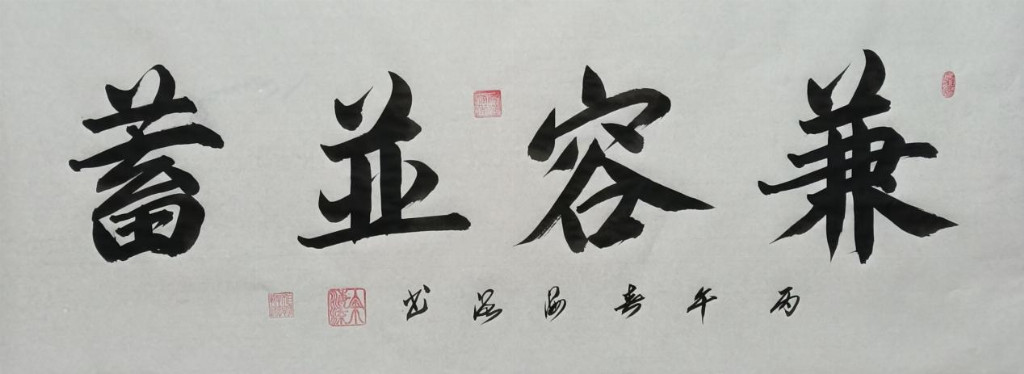 兼容並蓄
丙午春海源书